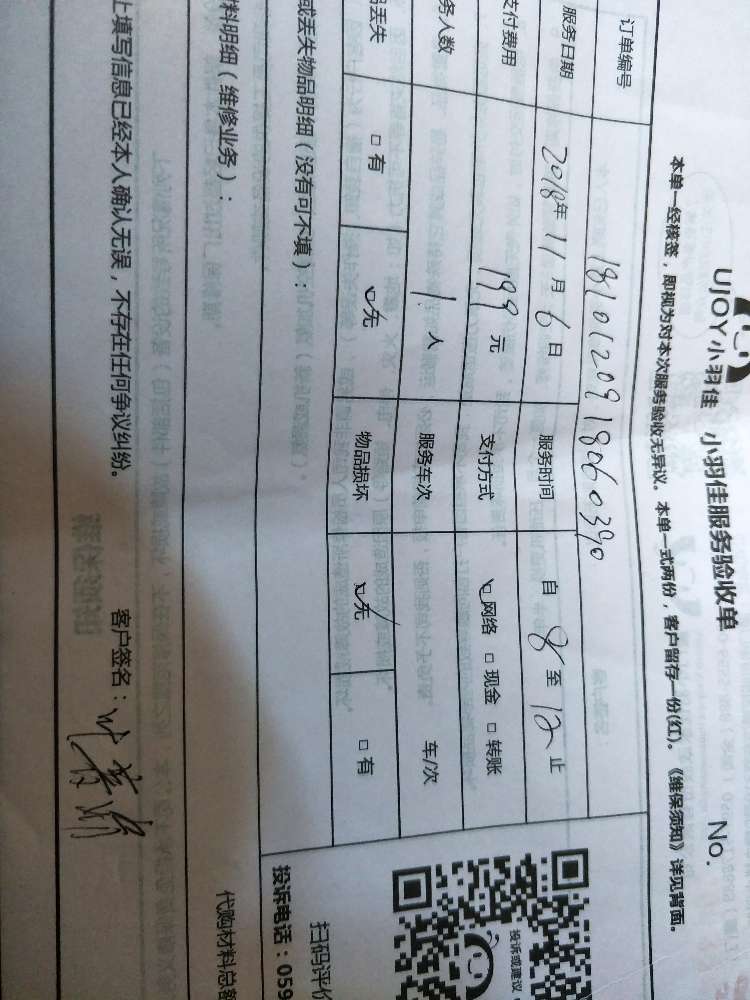 UJOY小羽佳 小羽佳服务验收单 No.
本单一经核签，即视为对本次服务验收无异议。本单一式两份，客户留存一份(红)。《维保须知》详见背面。
订单编号 1810120918060390
服务日期 2018年11月6日 服务时间 自8至12止
支付费用 199元 支付方式 网络 □现金 □转账
务人数 1人 服务车次 车/次
丢失 □有 无 物品损坏 无 □有
或丢失物品明细（没有可不填）：
料明细（维修业务）：
上填写信息已经本人确认无误，不存在任何争议纠纷。
客户签名：
投诉或建议
扫码评价
投诉电话：059
代购材料总额